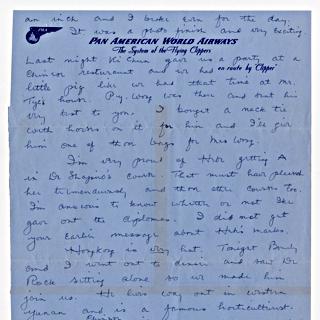 am inch and I broke even for the day.
It was a photo finish and very exciting.
PAN AMERICAN WORLD AIRWAYS
The System of the Flying Clippers
Last night Ki Chun gave us a party at a
en route by Clipper
Chinese restaurant and we had
little pig like we had that time at Mr.
Tye's house. Py-Wong was there and sent his
very best to you. I bought a neck tie
with horses on it for him and I'll give
him one of those bags for Mrs Wong.
I'm very proud of getting A
in Dr Shapiro's course. That must have pleased
her tremendously and those other courses too.
I'm anxious to know whether or not Ike
gave out the diplomas. I did not get
your earlier message about marks.
Hongkong is very hot. Tonight
and I went out to dinner and saw Dr
Rock sitting alone so we made him
join us. He lives way out in western
Yunan and is a famous horticulturist.